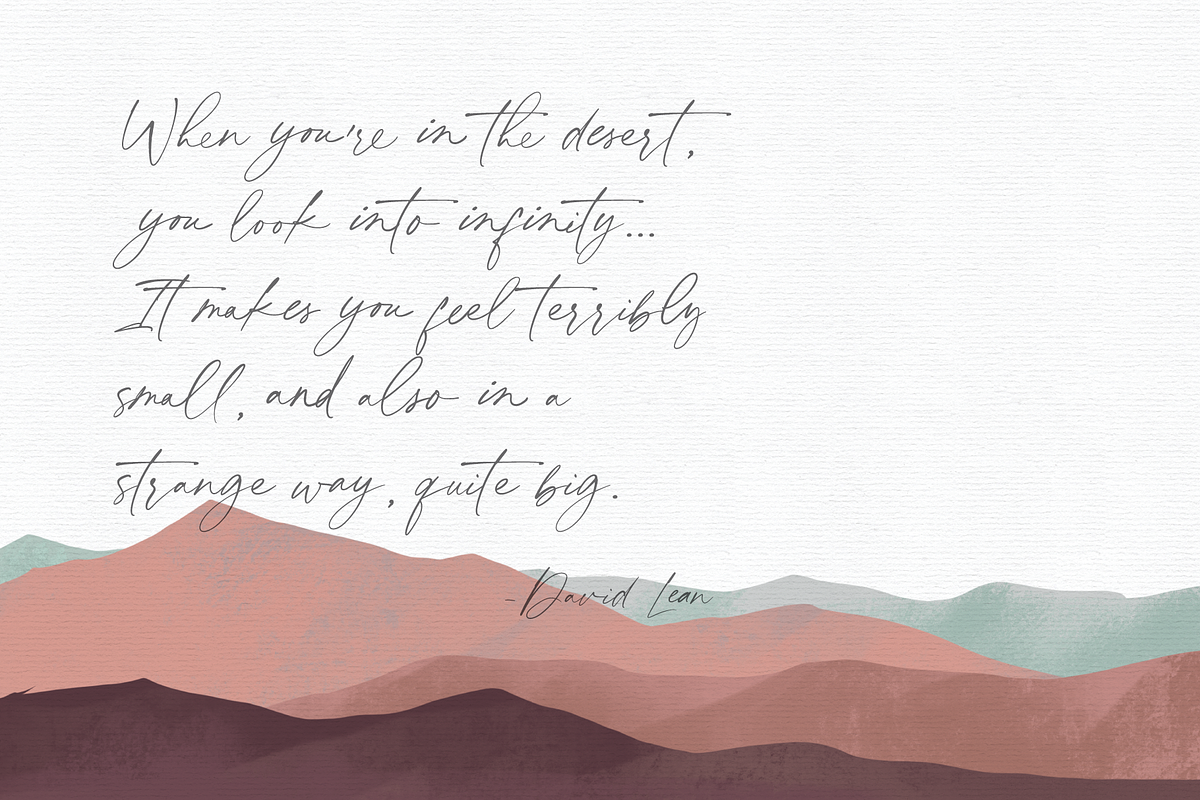 When you're in the desert,
you look into infinity...
It makes you feel terribly
small, and also in a
strange way, quite big.
-David Lean